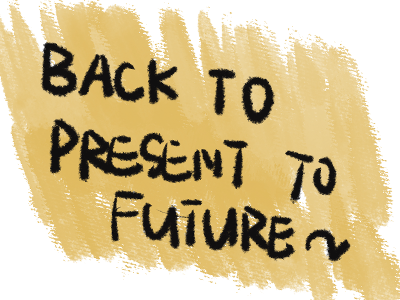 BACK TO
PRESENT TO
FUTURE~